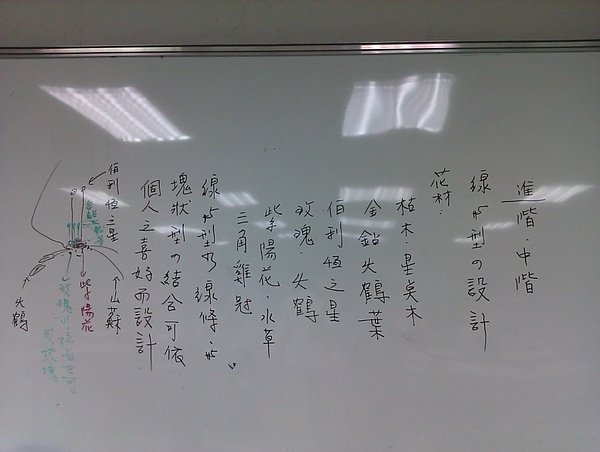 進階·中階
線的型の設計
花材:
枯木·星奌木
金鉛火鶴葉
伯利恒之星
玫瑰·火鶴
紫陽花·水草
三角雞冠
線的型乃線條·的
塊狀型の結合可依
個人之喜好而設計
伯利恒之星
山蘇
紫陽花
火鶴